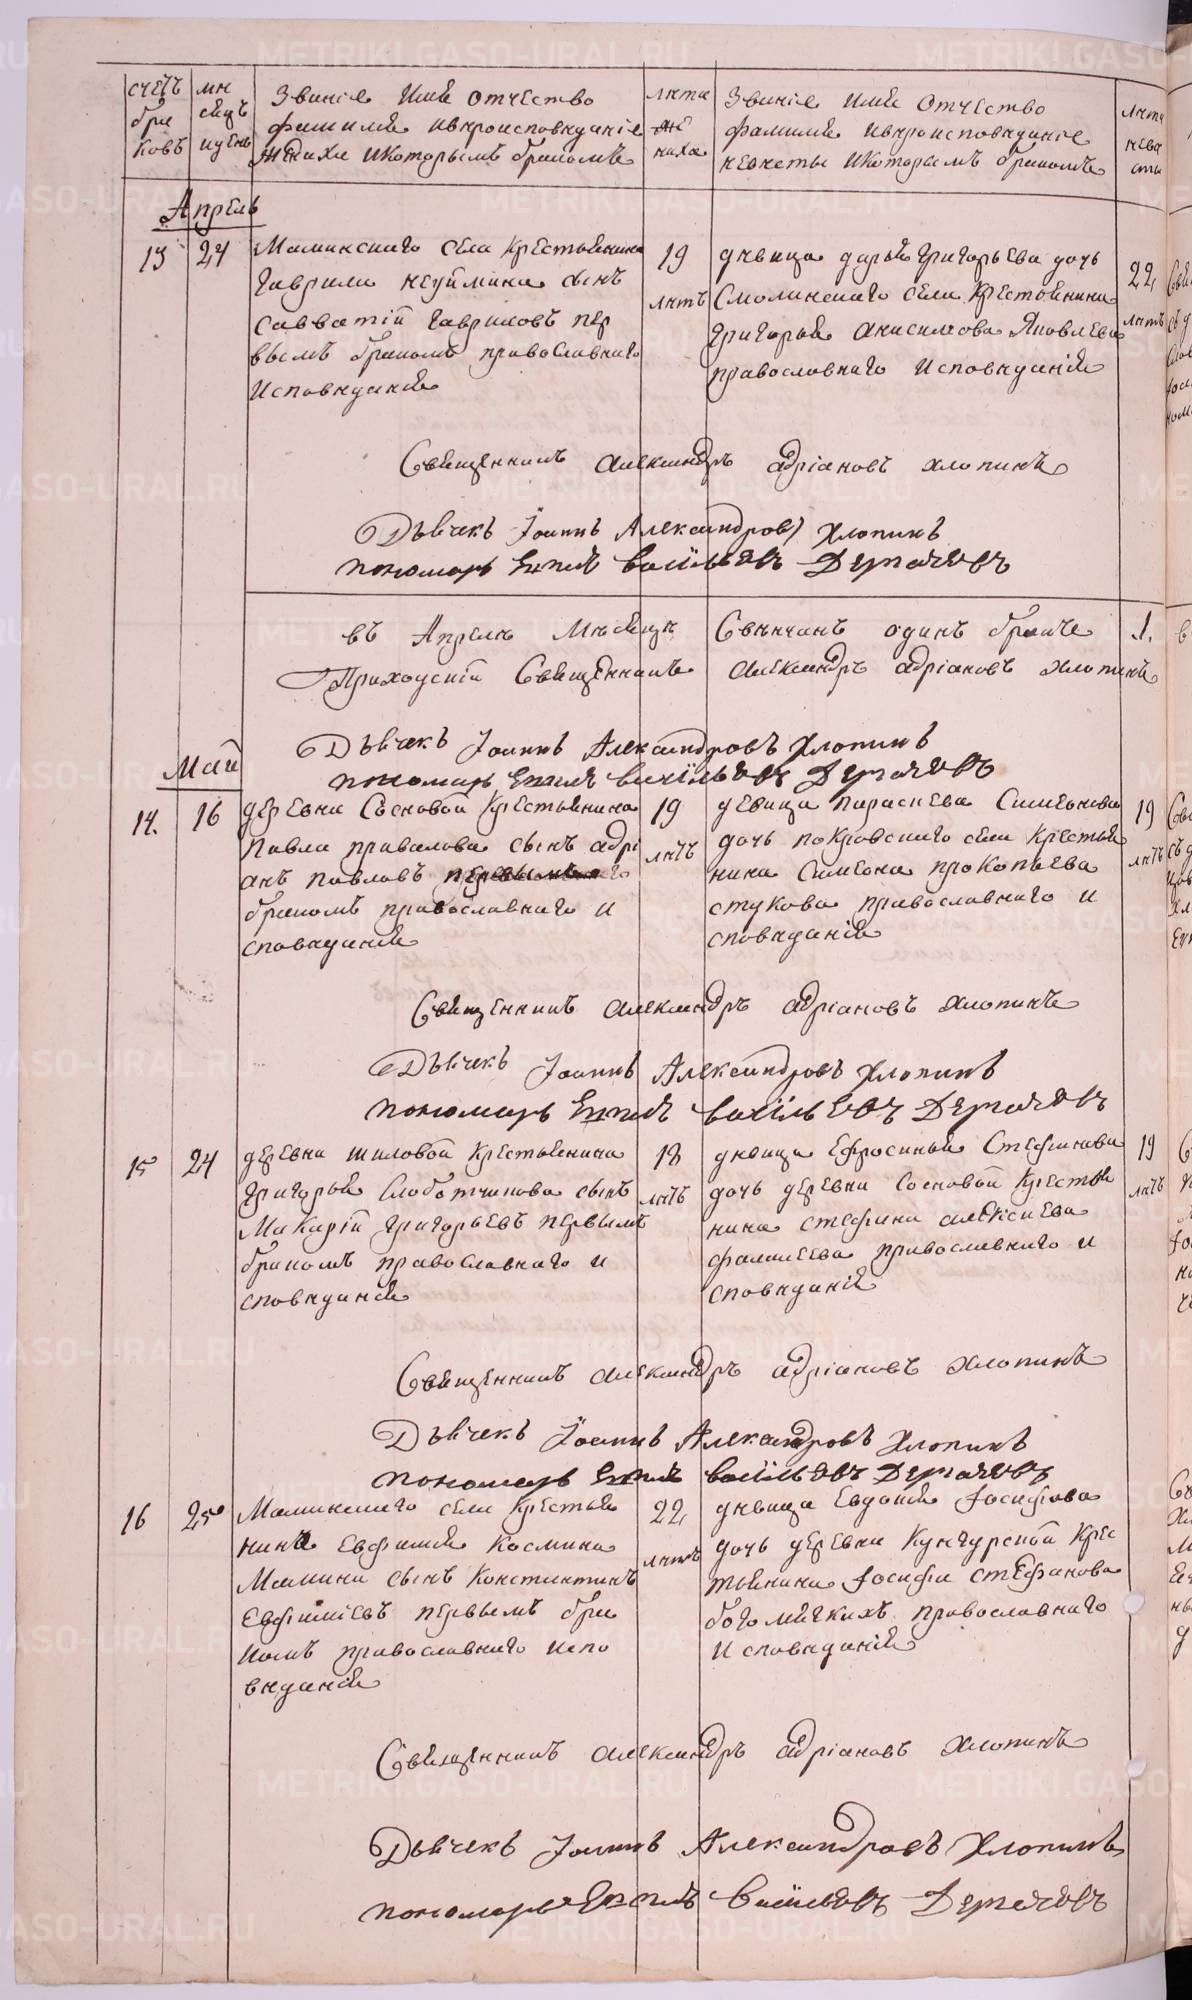 счетъ бра ковъ
мѣ сяцъ идень
Званіе Имя отчество
фамилия ивѣроисповѣданіе
жениха икоторымъ бракомъ
лѣта же ниха
Званіе имя отчество
фамилия ивѣроисповѣданіе
невѣсты икоторымъ бракомъ
лѣта неве сты
Апрель
13 24
Маминскаго села Крестьянина
Гаврила неуймина сынъ
Савватій Гавриловъ пер
вымъ бракомъ православнаго
Исповѣданія
19 лѣтъ
дѣвица дарья Григорьева дочь
Смолинскаго села Крестьянина
Григорья анисимова Яковлева
православнаго Исповѣданія
22, лѣтъ
Священникъ александръ адріановъ хлопинъ
Дьячекъ Іоаннъ Александровъ Хлопинъ
пономарь васильевъ
въ Апреле Мѣсяцѣ Свѣнчанъ одинъ бракъ 1.
Приходскій Священникъ александръ адріановъ хлопинъ
Дьячекъ Іоаннъ Александровъ Хлопинъ
Май
пономарь васильевъ
14. 16
деревни Сосновой Крестьянина
Павла привалова сынъ адрі
анъ павловъ первымъ
бракомъ православнаго и
сповѣданія
19 лѣтъ
девица параскева Симеонова
дочь покровскаго села Крестья
нина Симеона прокопьева
стукова православнаго и
сповѣданія
19 лѣтъ
Священникъ александръ адріановъ хлопинъ
Дьячекъ Іоаннъ Александровъ Хлопинъ
пономарь васильевъ
15 24
деревни шиловой Крестьянина
Григорья Слободчикова сынъ
Макарій Григорьевъ первымъ
бракомъ православнаго и
сповѣданія
18 лѣтъ
дѣвица Ефросинья Стефанова
дочь деревни Сосновой Крестья
нина стефана алексиева
фалалеева православнаго и
сповѣданія
19 лѣтъ
Священникъ александръ адріановъ хлопинъ
Дьячекъ Іоаннъ Александровъ Хлопинъ
пономарь васильевъ
16 25
Маминскаго села Крестья
нина Евфимия Космина
Мамина сынъ Константинъ
Евфиміевъ первымъ бра
комъ православнаго испо
вѣданія
22, лѣтъ
дѣвица Евдокия Іосифова
дочь деревни Кунгурской Крес
тьянина Іосифа стефанова
православнаго
Исповѣданія
Священникъ александръ адріановъ хлопинъ
Дьячекъ Іоаннъ Александровъ Хлопинъ
пономарь васильевъ